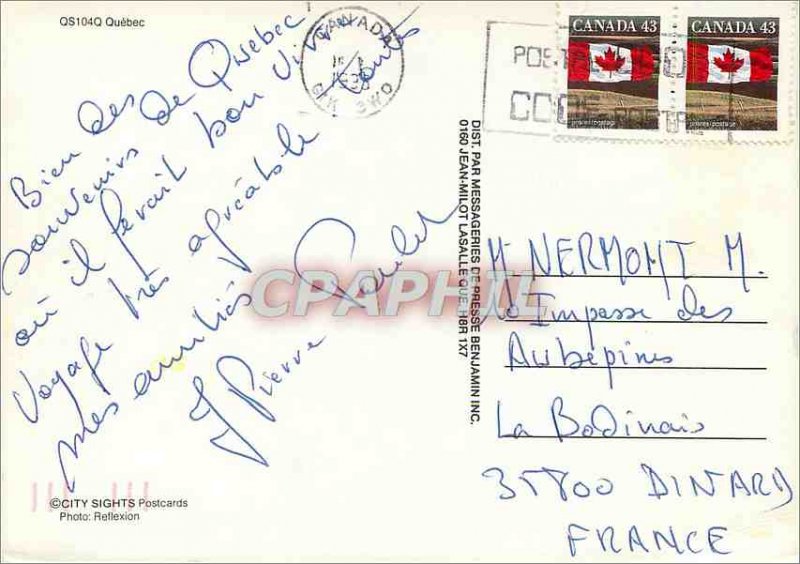 QS104Q Québec
Bien des
souvenirs de Québec
où il ferait bon vivre
Voyage très agréable
mes amitiés
J Pierre
©CITY SIGHTS Postcards
Photo: Reflexion
DIST. PAR MESSAGERIES DE PRESSE BENJAMIN INC.
0160 JEAN-MILOT LASALLE QUE. H8R 1X7
CANADA
CANADA 43
CANADA 43
postes/postage
postes/postage
POSTAL
CODE POSTAL
CPAPHIL
M. NERMONT M.
Impasse des
Aubépines
La Bodinais
35800 DINARD
FRANCE